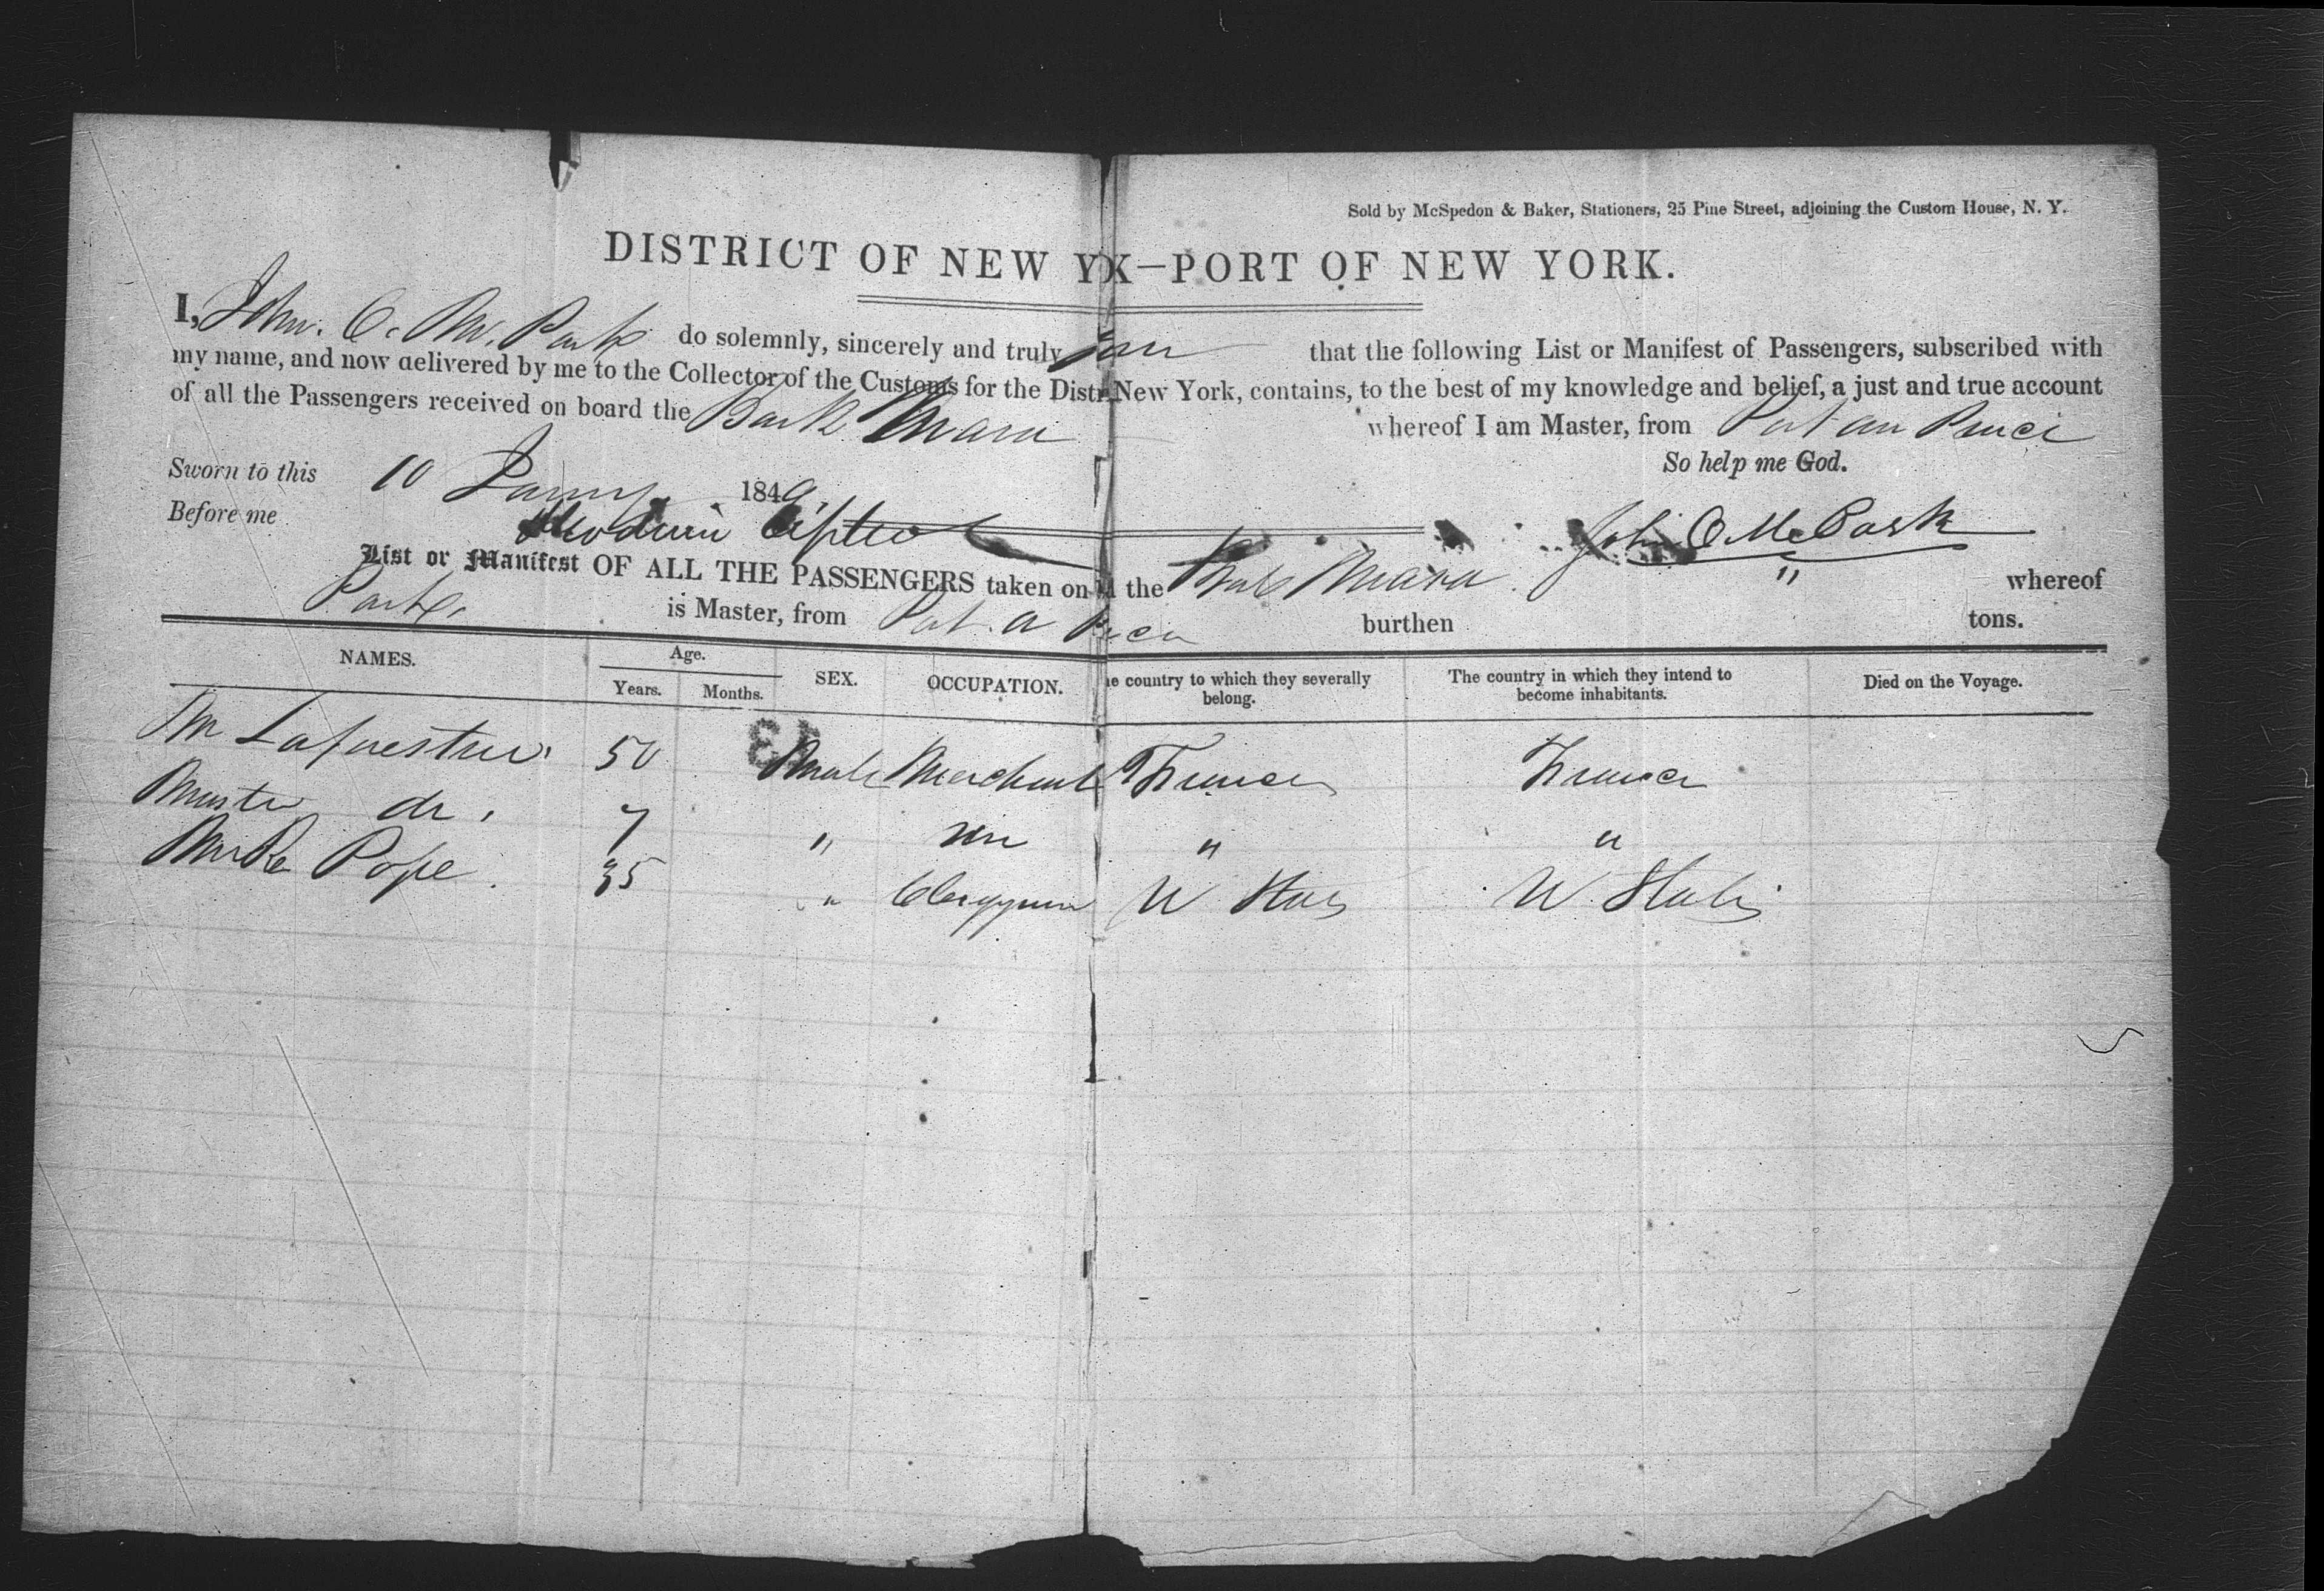 Sold by McSpedon & Baker, Stationers, 25 Pine Street, adjoining the Custom House, N. Y.
DISTRICT OF NEW Y K—PORT OF NEW YORK.
I, John. O. Mc. Park do solemnly, sincerely and truly that the following List or Manifest of Passengers, subscribed with
my name, and now delivered by me to the Collector of the Customs for the Distr New York, contains, to the best of my knowledge and belief, a just and true account
of all the Passengers received on board the Bark Mara whereof I am Master, from Port au Prince
So help me God.
Sworn to this 10 Jany 1849
Before me
John O Mc Park
List or Manifest OF ALL THE PASSENGERS taken on the Bark Mara whereof
Park, is Master, from Port a Prince burthen tons.
NAMES. Age. Years. Months. SEX. OCCUPATION. e country to which they severally belong. The country in which they intend to become inhabitants. Died on the Voyage.
13
Mr 50 Male Merchant France France
Master do. 7 " " "
Pope. 35 " Clergyman U States U. States